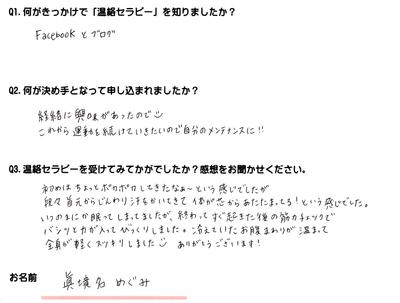 Q1. 何がきっかけで「温絡セラピー」を知りましたか？
Facebook とブログ
Q2. 何が決め手となって申し込まれましたか？
経絡に興味があったので
これから運動を続けていきたいので自分のメンテナンスに!!
Q3. 温絡セラピーを受けてみていかがでしたか？感想をお聞かせください。
初めはちょっとポカポカしてきたなぁ〜という感じでしたが
段々首元からじんわり汗をかいてきて体が芯からあたたまってる！という感じでした。
いつのまにか眠ってしまってましたが、終わってすぐ起きた後の筋力チェックで
バシッと力が入ってびっくりしました。冷えていたお腹まわりが温まって
全身が軽くスッキリしました ありがとうございます！
お名前 眞境名 めぐみ